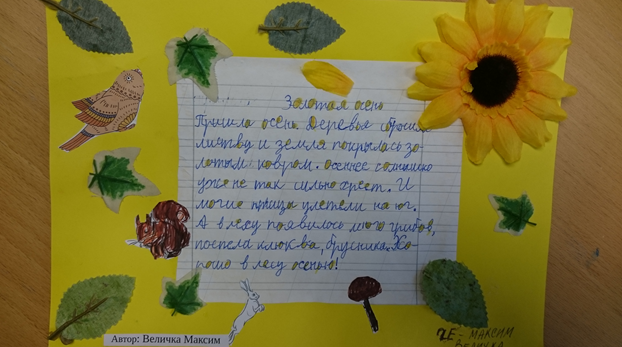 Золотая осень
Пришла осень. Деревья сбросили
листву и земля покрылась зо-
лотым ковром. Осеннее солнышко
уже не так сильно греет. И
могие птицы улетели на юг.
А в лесу появилось много грибов,
поспела клюк-ва, брусника. Хо-
рошо в лесу осенью!
Автор: Величка Максим
МАКСИМ
ВЕЛИЧКА